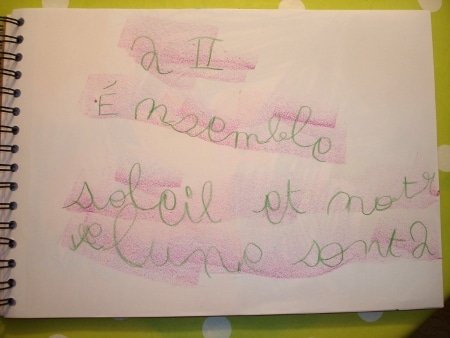 2 II
É nsemble
soleil et notr
e lune sont 2